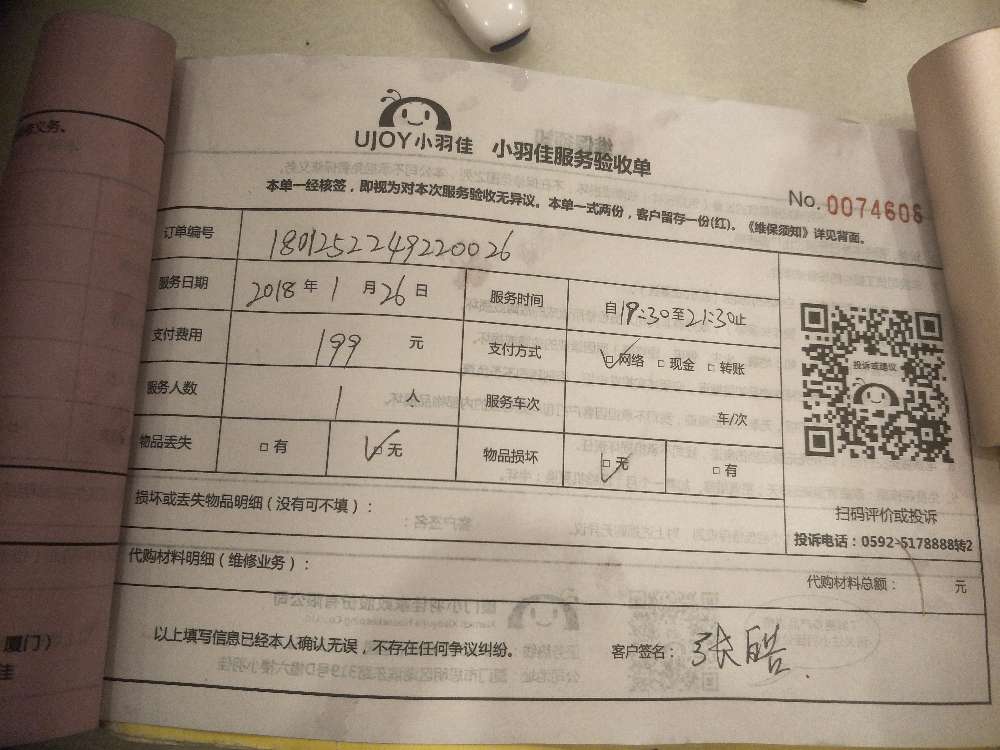 UJOY小羽佳 小羽佳服务验收单
No. 0074608
本单一经核签，即视为对本次服务验收无异议。本单一式两份，客户留存一份(红)。《维保须知》详见背面。
订单编号 1801252249220026
服务日期 2018 年 1 月 26 日 服务时间 自19:30至21:30止
支付费用 199 元 支付方式 □网络 □ 现金 □ 转账
服务人数 1 人 服务车次 车/次
物品丢失 □ 有 □无 物品损坏 □无 □ 有
损坏或丢失物品明细（没有可不填）：
投诉或建议
扫码评价或投诉
投诉电话：0592-5178888转2
代购材料明细（维修业务）： 代购材料总额： 元
以上填写信息已经本人确认无误，不存在任何争议纠纷。 客户签名： 张皓
义务。
厦门）
佳